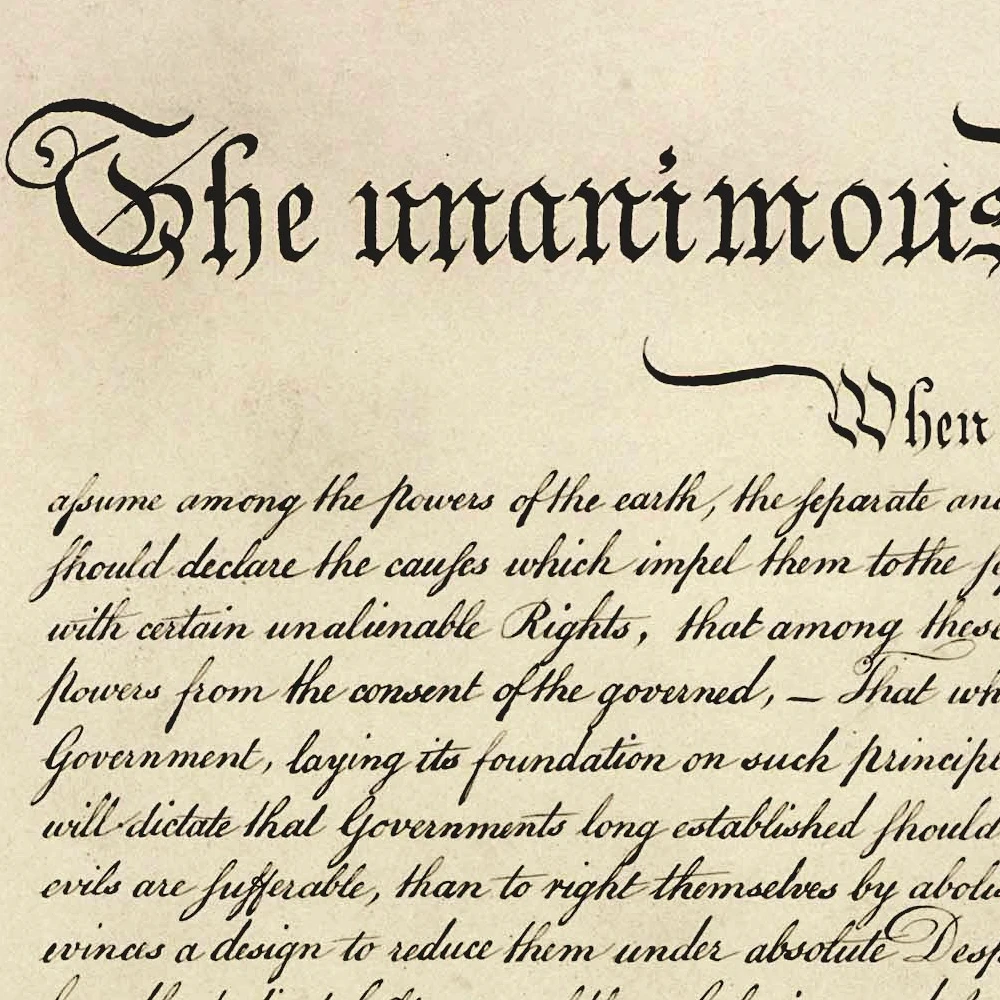 The unanimous
When
aſsume among the powers of the earth, the ſeparate and
ſhould declare the cauſes which impel them to the
with certain unalienable Rights, that among these
powers from the consent of the governed, — That
Government, laying its foundation on such
will dictate that Governments long established ſhould
evils are ſufferable, than to right themselves by
evinces a design to reduce them under absolute